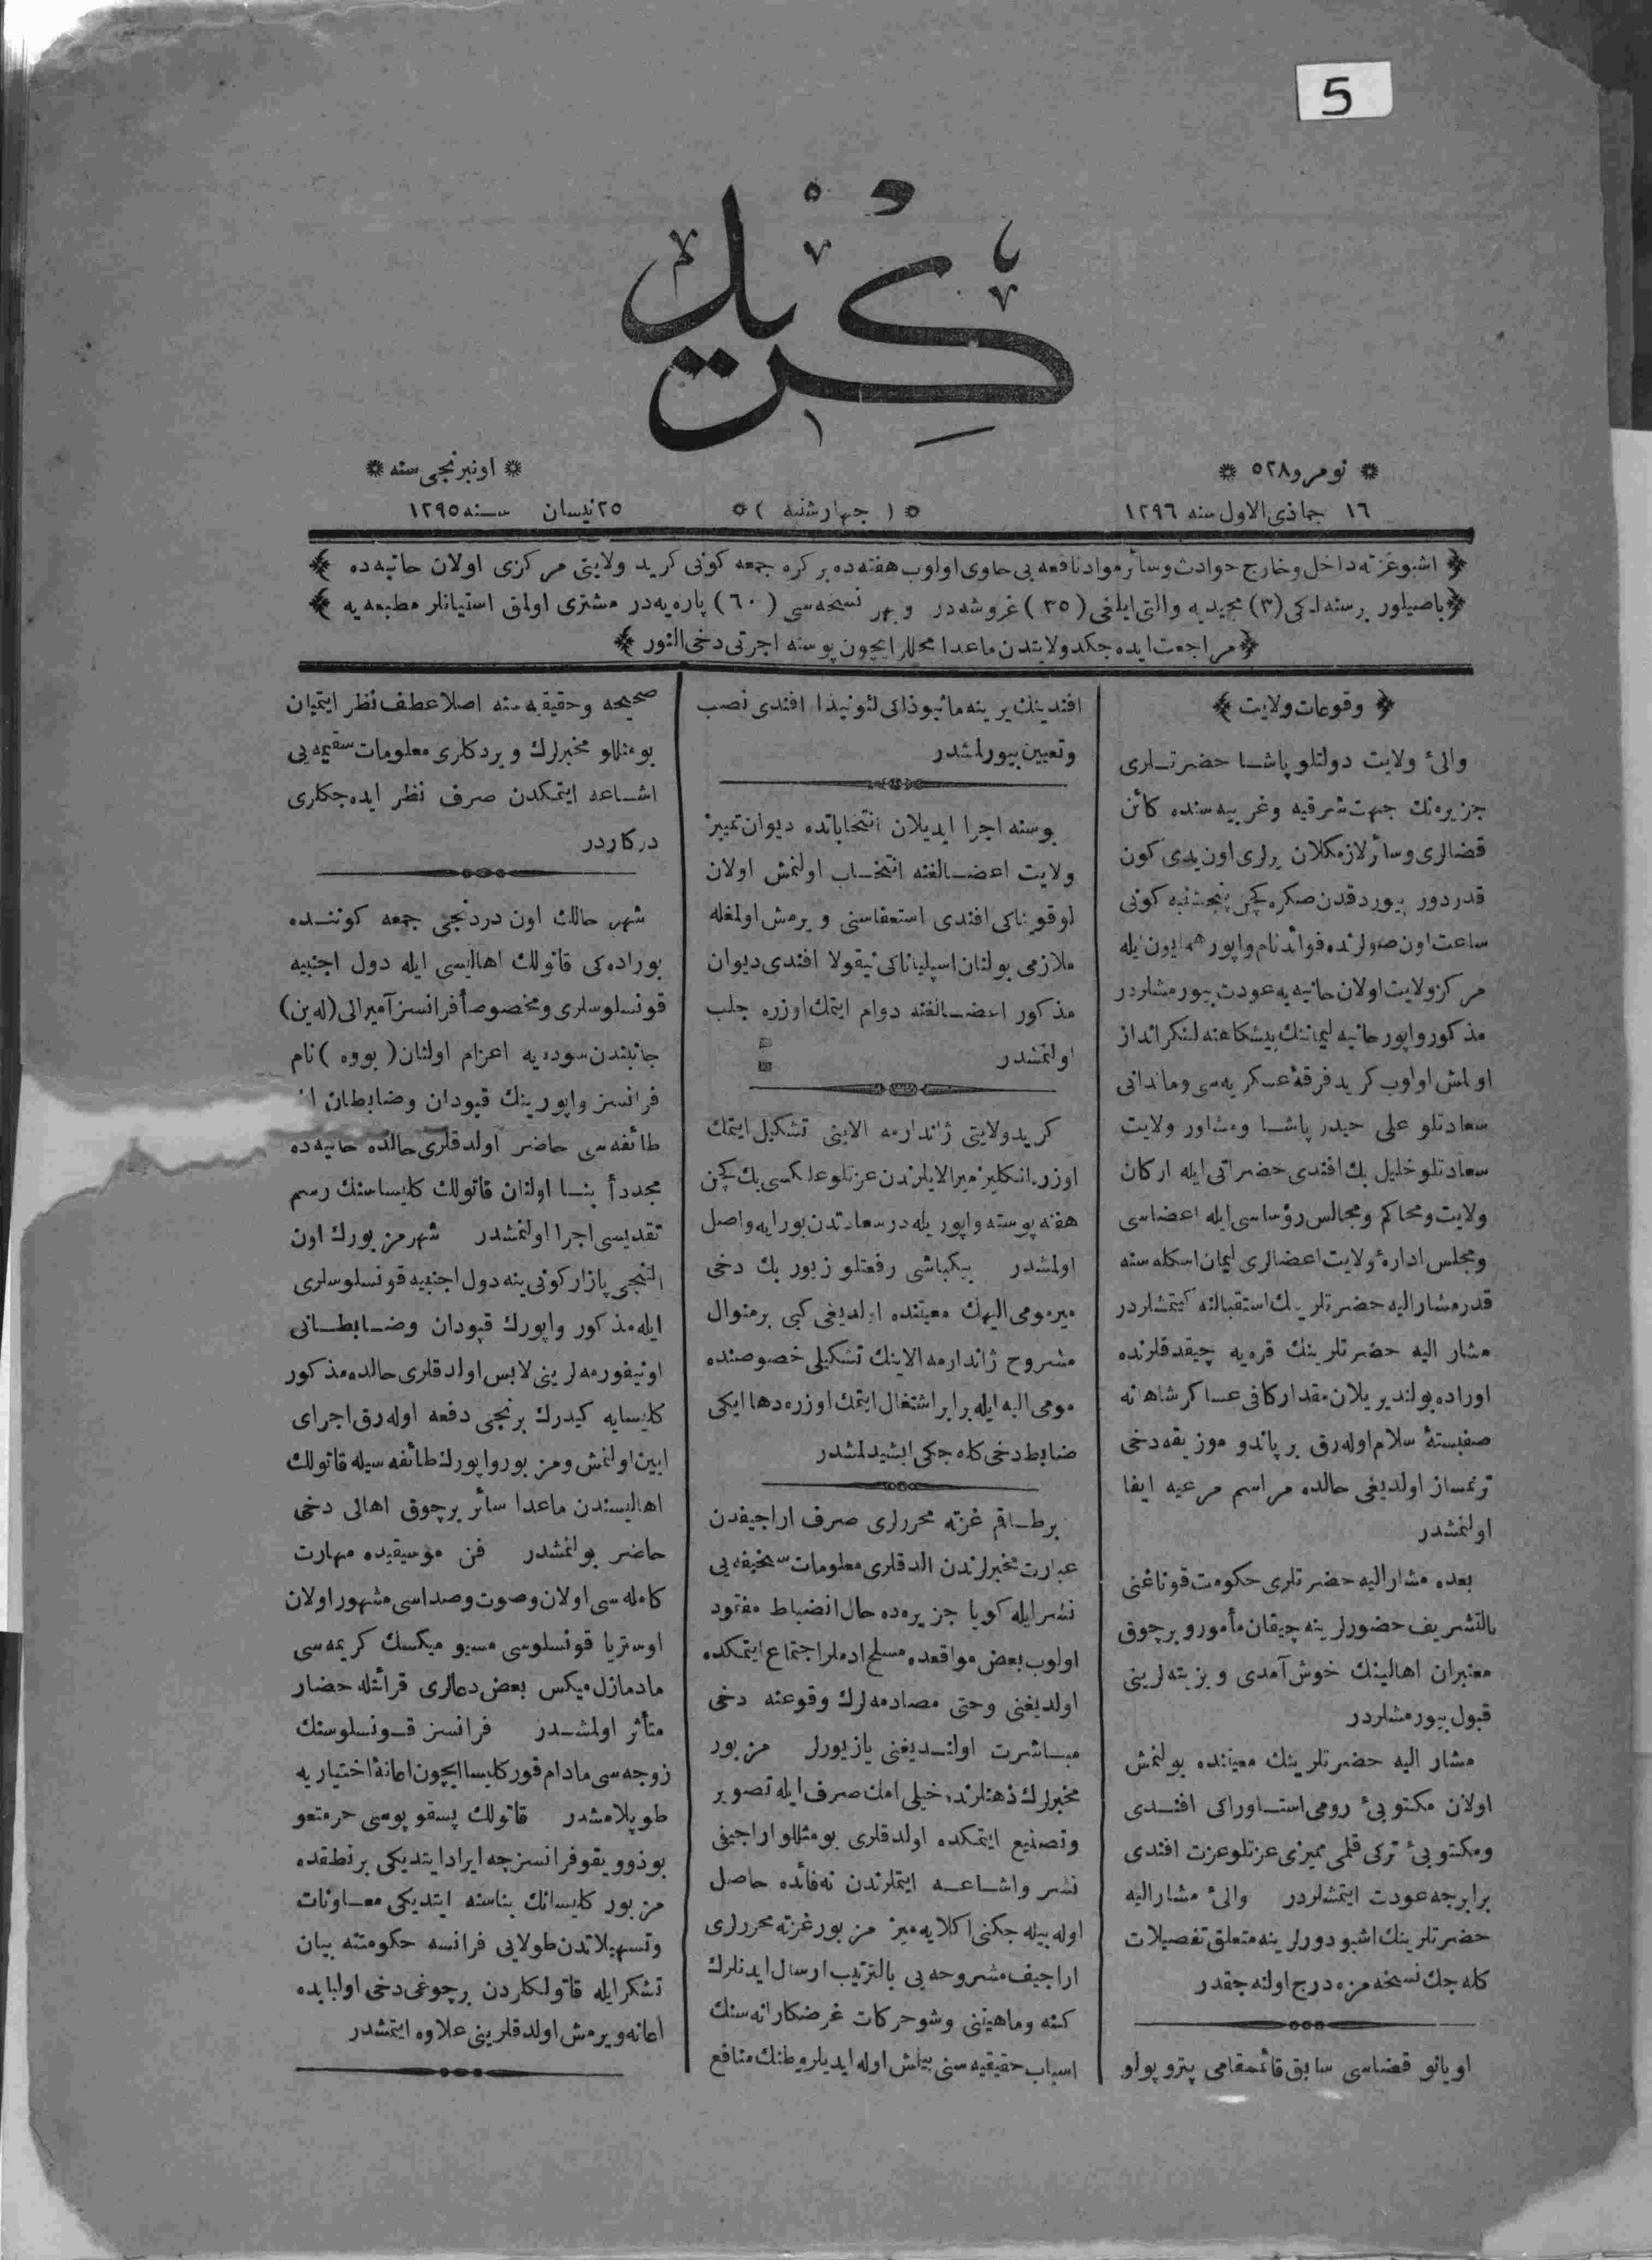 5
كريد
نومرو ٥٢٨
اونبرنجی سنه
١٦ جماذی الاول سنه ١٢٩٦
( چهارشنبه )
٢٥ نیسان سنه ١٢٩٥
اشبو غزته داخل و خارج حوادث و سائر مواد نافعه یی حاوی اولوب هفته ده بر کره جمعه کونی کرید ولایتی مرکزی اولان حانیه ده
باصیلور بر سنه لکی (٣) مجیدیه والتی ایلغی (٣٥) غروشه در و بهر نسخه سی (٦٠) پاره یه در مشتری اولمق استیانلر مطبعه یه
مراجعت ایده جکدر ولایتدن ماعدا محللر ایچون پوسته اجرتی دخی النور
وقوعات ولایت
والیٔ ولایت دولتلو پاشا حضرتلری
جزیره نك جهت شرقیه و غربیه سنده کائن
قضالری و سائر لازمکلان یرلری اون یدی کون
قدر دور بیوردقدن صکره کچن پنجشنبه کونی
ساعت اون صولرنده فوائد نام واپور همایون یله
مرکز ولایت اولان حانیه یه عودت بیورمشلردر
مذکور واپور حانیه لیماننك پیشکاهنه لنکر انداز
اولمش اولوب کرید فرقهٔ عسکریه سی قوماندانی
سعادتلو علی حیدر پاشا و مشاور ولایت
سعادتلو خلیل بك افندی حضراتی ایله ارکان
ولایت و محاکم و مجالس رؤساسی ایله اعضاسی
و مجلس ادارهٔ ولایت اعضالری لیمان اسکله سنه
قدر مشار الیه حضرتلرینك استقبالنه کیتمشلردر
مشار الیه حضرتلرینك قره یه چیقدقلرنده
اوراده بولندیریلان مقدار کافی عساکر شاهانه
صفبستهٔ سلام اوله رق بر پاندو موزیقه دخی
ترنمساز اولدیغی حالده مراسم مرعیه ایفا
اولنمشدر
بعده مشار الیه حضرتلری حکومت قوناغنی
بالتشریف حضورلرینه چیقان مأمور و برچوق
معتبران اهالینك خوش آمدی و بزیته لرینی
قبول بیورمشلردر
مشار الیه حضرتلرینك معیتنده بولنمش
اولان مکتوبیٔ رومی استاوراکی افندی
و مکتوبیٔ ترکی قلمی ممیزی عزتلو عزت افندی
برابرجه عودت ایتمشلردر والیٔ مشار الیه
حضرتلرینك اشبو دورلرینه متعلق تفصیلات
کله جك نسخه مزه درج اولنه جقدر
اویانو قضاسی سابق قائمقامی پترو پولو
افندینك یرینه مانیوذاکی لئونیذا افندی نصب
و تعیین بیورلمشدر
بو سنه اجرا ایدیلان انتخاباتده دیوان تمییز
ولایت اعضالغنه انتخاب اولنمش اولان
لوقویناکی افندی استعفاسنی ویرمش اولمغله
ملازمی بولنان اسپلیاناکی نیقولا افندی دیوان
مذکور اعضالغنه دوام ایتمك اوزره جلب
اولنمشدر
کرید ولایتی ژاندارمه الاینی تشکیل ایتمك
اوزره انکلیز میرالایلرندن عزتلو بك کچن
هفته پوسته واپوریله درسعادتدن بورایه واصل
اولمشدر بیکباشی رفعتلو زیور بك دخی
میر مومی الیهك معیتنده اولدیغی کبی بر منوال
مشروح ژاندارمه الاینك تشکیلی خصوصنده
مومی الیه ایله برابر اشتغال ایتمك اوزره دها ایکی
ضابط دخی کله جکی ایشیدلمشدر
بر طاقم غزته محررلری صرف اراجیفدن
عبارت مخبرلرندن الدقلری معلومات سخیفه یی
نشر ایله کویا جزیره ده حال انضباط مفقود
اولوب بعض مواقعده مسلح ادملر اجتماع ایتمکده
اولدیغنی وحتی مصادمه لرك وقوعنه دخی
مباشرت اولندیغنی یازیورلر مزبور
مخبرلرك ذهنلرنده خیلی امك صرف ایله تصویر
و تصنیع ایتمکده اولدقلری بو مثللو اراجیفی
نشر و اشاعه ایتملرندن نه فائده حاصل
اوله بیله جکنی اکلایه میز مزبور غزته محررلری
اراجیف مشروحه یی بالترتیب ارسال ایدنلرك
کنه و ماهیتنی و شو حرکات غرضکارانه سنك
اسباب حقیقیه سنی بیلمش اوله ایدیلر وطنك منافع
صحیحه و حقیقیه سنه اصلا عطف نظر ایتمیان
بو مثللو مخبرلرك ویردکلری معلومات سقیمه یی
اشاعه ایتمکدن صرف نظر ایده جکلری
درکاردر
شهر حالك اون دردنجی جمعه کوننده
بوراده کی قاتولك اهالیسی ایله دول اجنبیه
قونسلوسلری و مخصوصاً فرانسز آمیرالی (له ین)
جانبندن سودیه یه اعزام اولنان ( بووه ) نام
فرانسز واپورینك قپودان وضابطان
طائفه سی حاضر اولدقلری حالده حانیه ده
مجدداً بنا اولنان قاتولك کلیساسنك رسم
تقدیسی اجرا اولنمشدر شهر مزبورك اون
التنجی پازار کونی ینه دول اجنبیه قونسلوسلری
ایله مذکور واپورك قپودان وضابطانی
اونیفورمه لرینی لابس اولدقلری حالده مذکور
کلیسایه کیدرك برنجی دفعه اوله رق اجرای
ایین اولنمش و مزبور واپورك طائفه سیله قاتولك
اهالیسندن ماعدا سائر برچوق اهالی دخی
حاضر بولنمشدر فن موسیقیده مهارت
کامله سی اولان و صوت و صداسی مشهور اولان
اوستریا قونسلوسی مسیو میکسك کریمه سی
مادمازل میکس بعض دعالری قرائتله حضار
متأثر اولمشدر فرانسز قونسلوسنك
زوجه سی مادام قور کلیسا ایچون اعانهٔ اختیاریه
طوپلامشدر قاتولك پسقوپوسی حرمتلو
فرانسزجه ایراد ایتدیکی بر نطقده
مزبور کلیسانك بناسنه ایتدیکی معاونات
و تسهیلاتدن طولایی فرانسه حکومتنه بیان
تشکر ایله قاتولکلردن برچوغی دخی اولبابده
اعانه ویرمش اولدقلرینی علاوه ایتمشدر